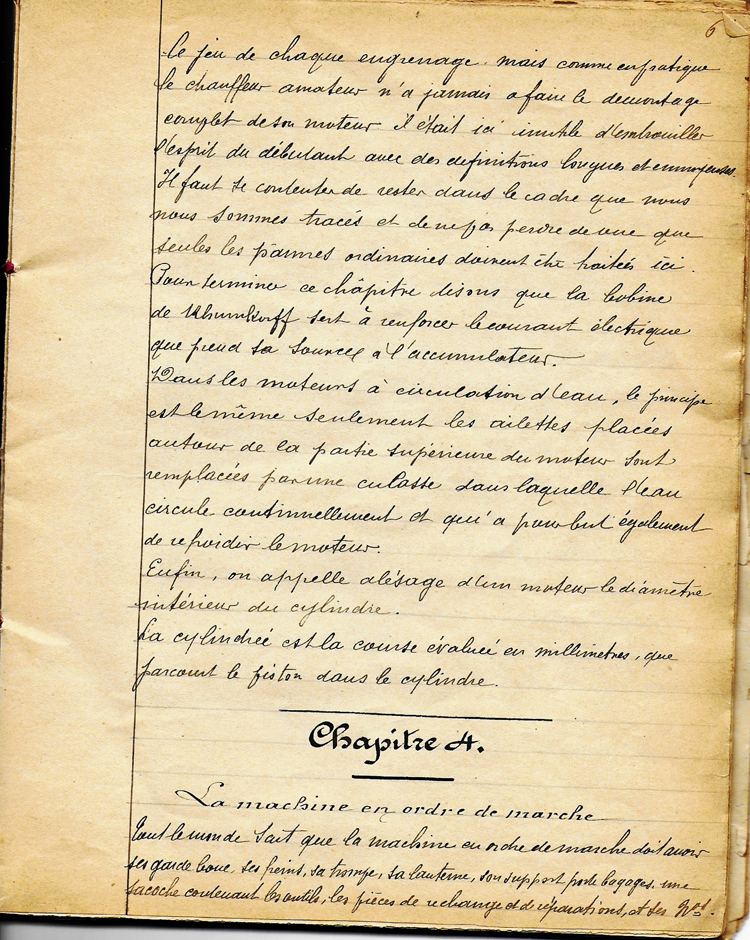 6
le jeu de chaque engrenage. mais comme en pratique
le chauffeur amateur n'a jamais a faire le demontage
complet de son moteur il était ici inutile d'embrouiller
l'esprit du débutant avec des definitions longues et ennuyeuses.
Il faut se contenter de rester dans le cadre que nous
nous sommes tracés et de ne pas perdre de vue que
seules les pannes ordinaires doivent être traitées ici.
Pour terminer ce châpitre disons que la bobine
de Rhumkorff sert à renforcer le courant électrique
que prend sa source à l'accumulateur.
Dans les moteurs à circulation d'eau, le principe
est le même seulement les ailettes placées
autour de la partie supérieure du moteur sont
remplacées par une culasse dans laquelle l'eau
circule continuellement et qui a pour but également
de refroidir le moteur.
Enfin, on appelle alésage d'un moteur le diamètre
intérieur du cylindre.
La cylindrée est la course évaluée en millimetres, que
parcourt le piston dans le cylindre.
Chapitre 4.
La machine en ordre de marche
Tout le monde sait que la machine en ordre de marche doit avoir
ses garde boue, ses freins, sa trompe, sa lanterne, son support porte bagages. une
sacoche contenant les outils, les pièces de rechange et de réparations, et ses Nos